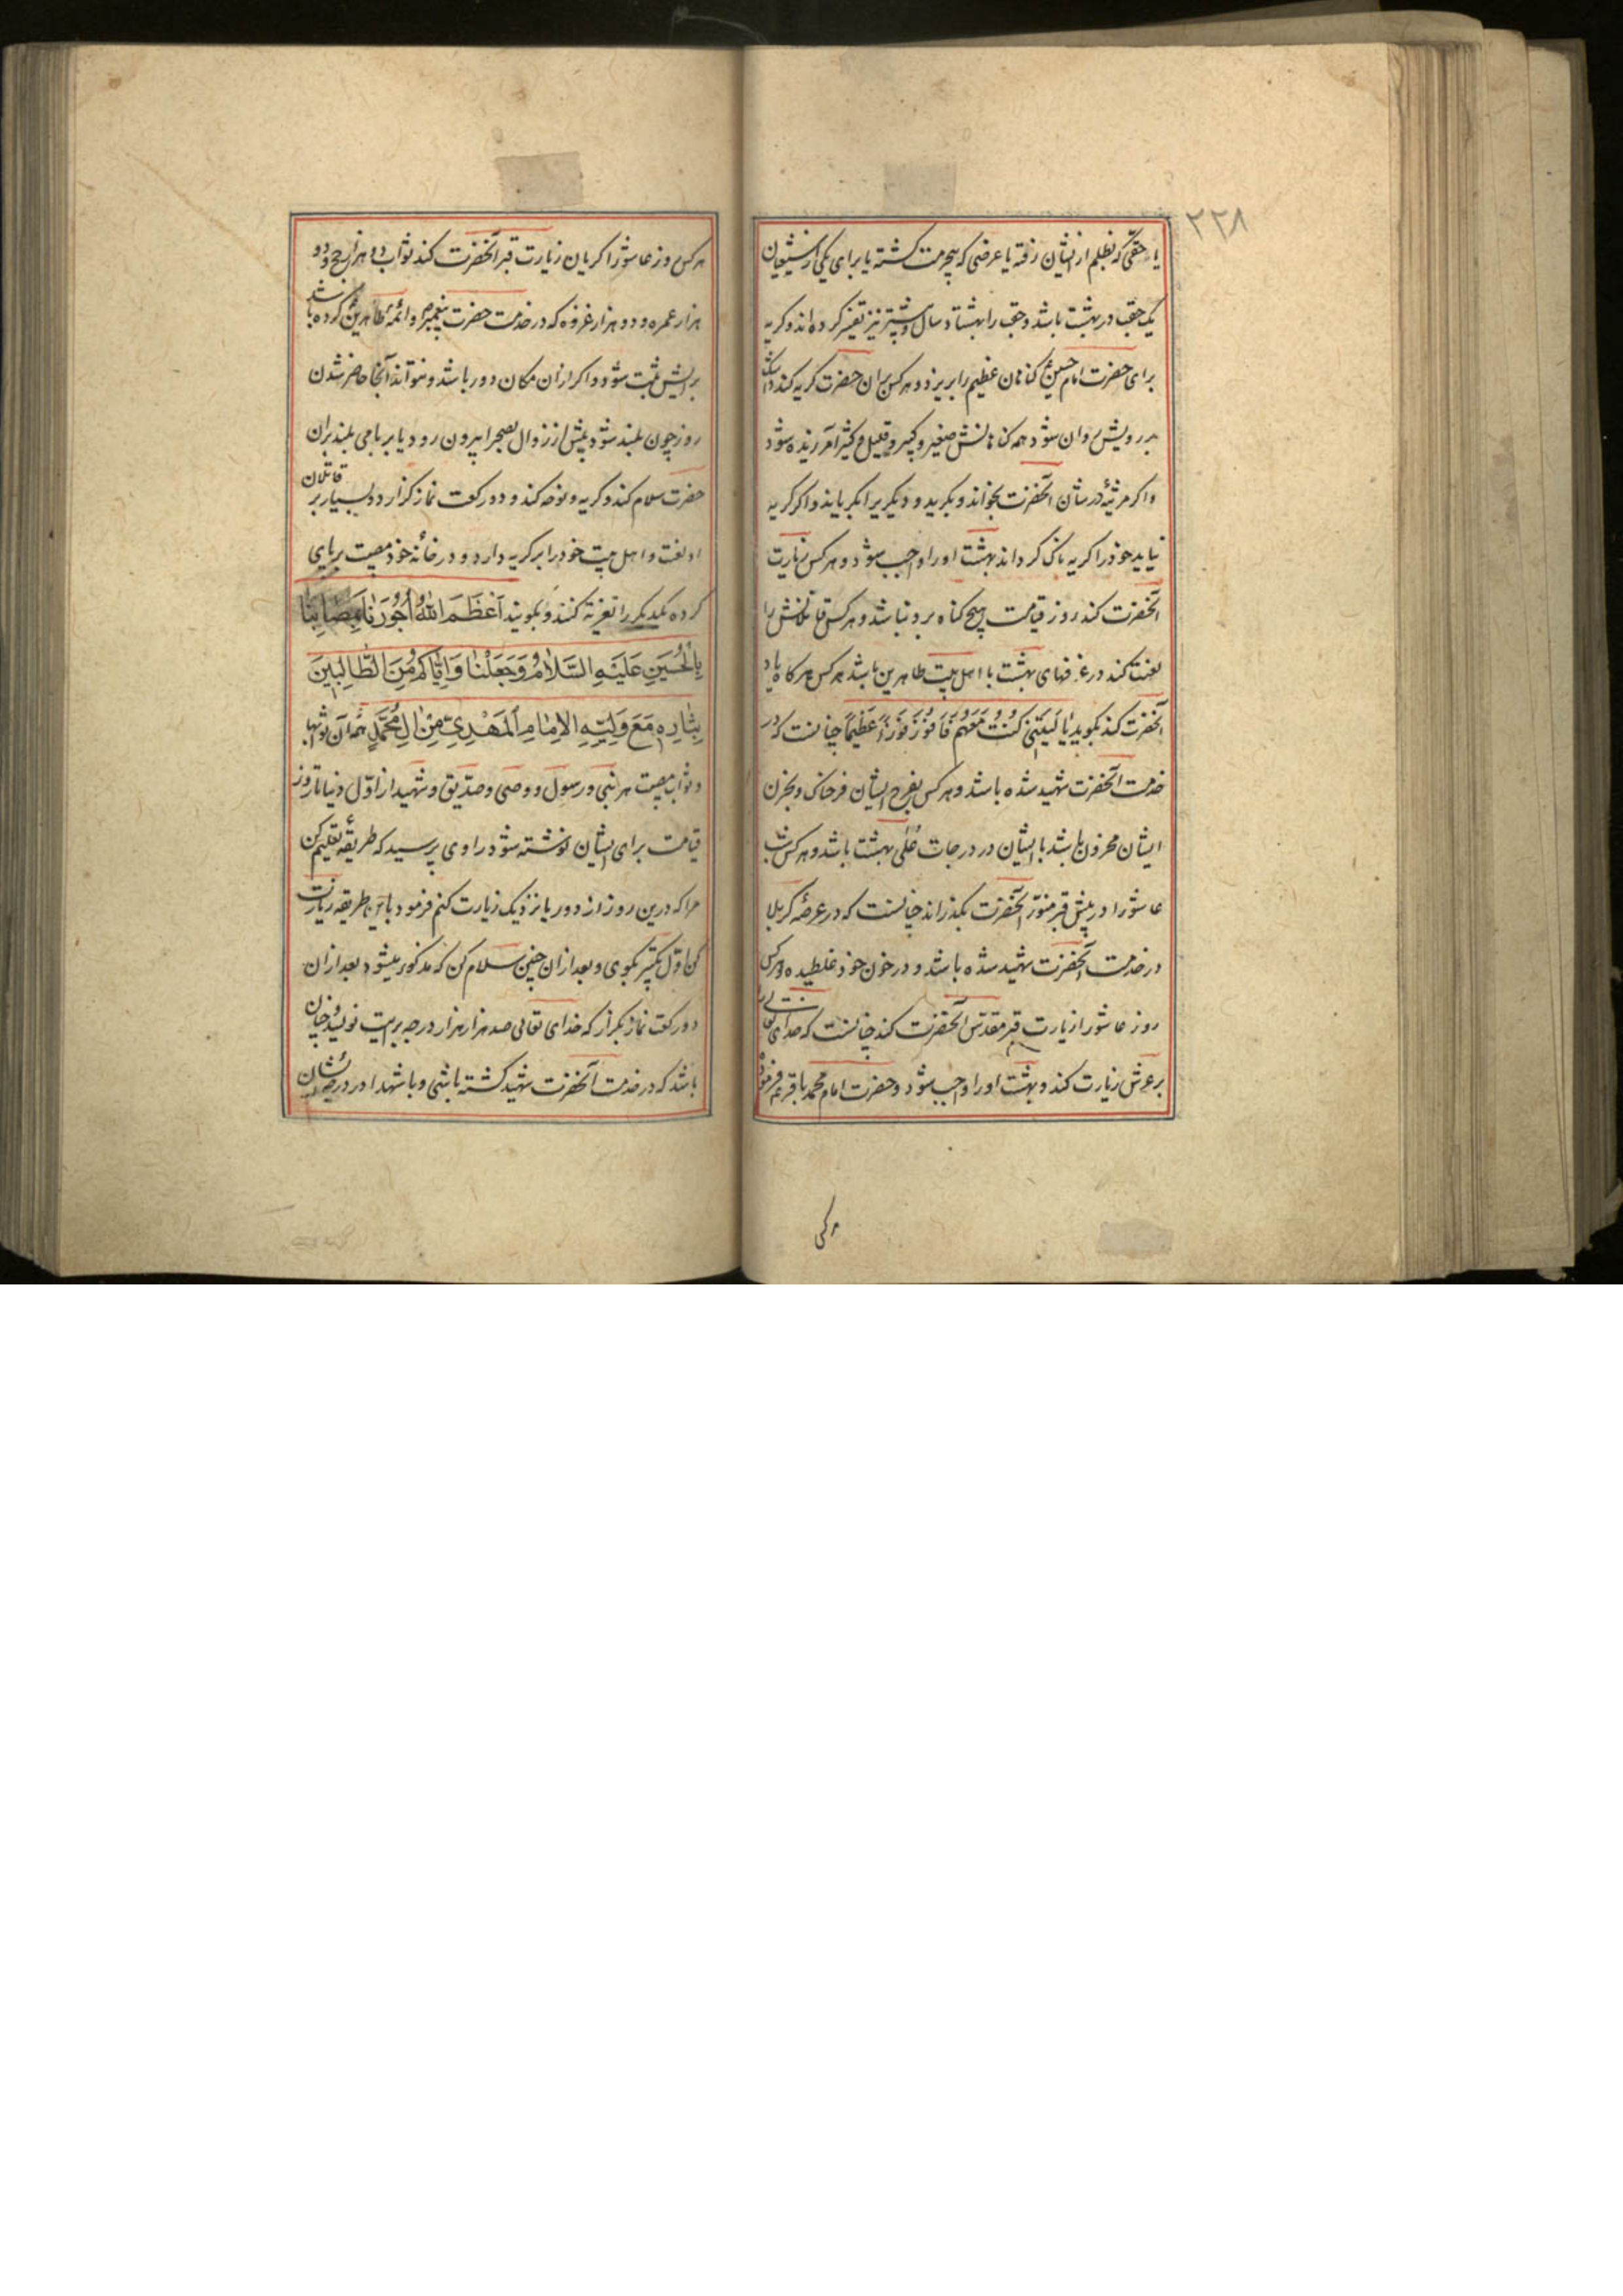 ۲۲۸
یا حقی که بظلم از ایشان رفته یا عرضی که بیحرمت کشته یا برای یکی از شیعیان
یک حقب در بهشت باشد و حقب را بهشتاد سال و بیشتر نیز تفسیر کرده‌اند و کریه
برای حضرت امام حسین ع کناهان عظیم را بریزد و هر کس بران حضرت کریه کند و اشک
بر رویش روان شود همه کناهانش صغیر و کبیر و قلیل و کثیر آمرزیده شود
و اکر مرثیه در شان آنحضرت بخواند و بکرید و دیکریرا بکریاند و اکر کریه
نیاید خود را کریه ناک کرداند بهشت او را واجب شود و هر کس زیارت
آنحضرت کند روز قیامت هیچ کناه برو نباشد و هر کس قاتلانش را
لعنت کند در غرفهای بهشت با اهل بیت طاهرین باشد هر کس هرکاه یاد
آنحضرت کند بکوید یَا لَیتَنِی کُنْتُ مَعَهُم فَاَفُوزَ فَوْزاً عَظِیماً چنانست که در
خدمت آنحضرت شهید شده باشد و هر کس بفرح ایشان فرحناک و بحزن
ایشان محزون باشد با ایشان در درجات عُلی بهشت باشد و هر کس شب
عاشورا در پیش قبر منوّر آنحضرت بکذراند چنانست که در عرصهٔ کربلا
در خدمت آنحضرت شهید شده باشد و در خون خود غلطیده و هر کس
روز عاشورا زیارت قبر مقدّس آنحضرت کند چنانست که خدای تعالی را
بر عرش زیارت کند و بهشت او را واجب شود و حضرت امام محمد باقر ع فرمود
هر کس روز عاشورا کریان زیارت قبر آنحضرت کند ثواب دو هزار حج و دو
هزار عمره و دو هزار غزوه که در خدمت حضرت پیغمبر ص و ائمهٔ طاهرین ع کرده باشد
برایش ثبت شود و اکر ازان مکان دور باشد و نتواند آنجا حاضر شدن
روز چون بلند شود پیش از زوال بصحرا بیرون رود یا بر بامی بلند بران
حضرت سلام کند و کریه و نوحه کند و دو رکعت نماز کزارد و بسیار بر قاتلان
او لعنت و اهل بیت خود را بر کریه دارد و در خانهٔ خود مصیبت برپای
کرده یکدیکر را تعزیه کنند و بکویند اَعْظَمَ اللهُ اُجُورَنَا بِمُصَابِنَا
بِالْحُسَینِ عَلَیهِ السَّلَامُ وَجَعَلْنَا وَاِیَّاکُم مِنَ الطَّالِبِینَ
بِثَارِهِ مَعَ وَلِیِّهِ الاِمَامِ المَهْدِیِّ مِنْ الِ مُحَمَّدٍ تمام آن ثوابها
و ثواب مصیبت هر نبی و رسول و وصی و صدّیق و شهید از اوّل دنیا تا روز
قیامت برای ایشان نوشته شود راوی پرسید که طریقهٔ تعلیم کن
مرا که درین روز از دور یا نزدیک زیارت کنم فرمود باین طریقه زیارت
کن اوّل تکبیر بکوی و بعد ازان چنین سلام کن که مذکور میشود بعد ازان
دو رکعت نماز بکزار که خدای تعالی صد هزار هزار درجه برایت نویسد و چنان
باشد که در خدمت آنحضرت شهید کشته باشی و با شهدا در درجهٔ ایشان